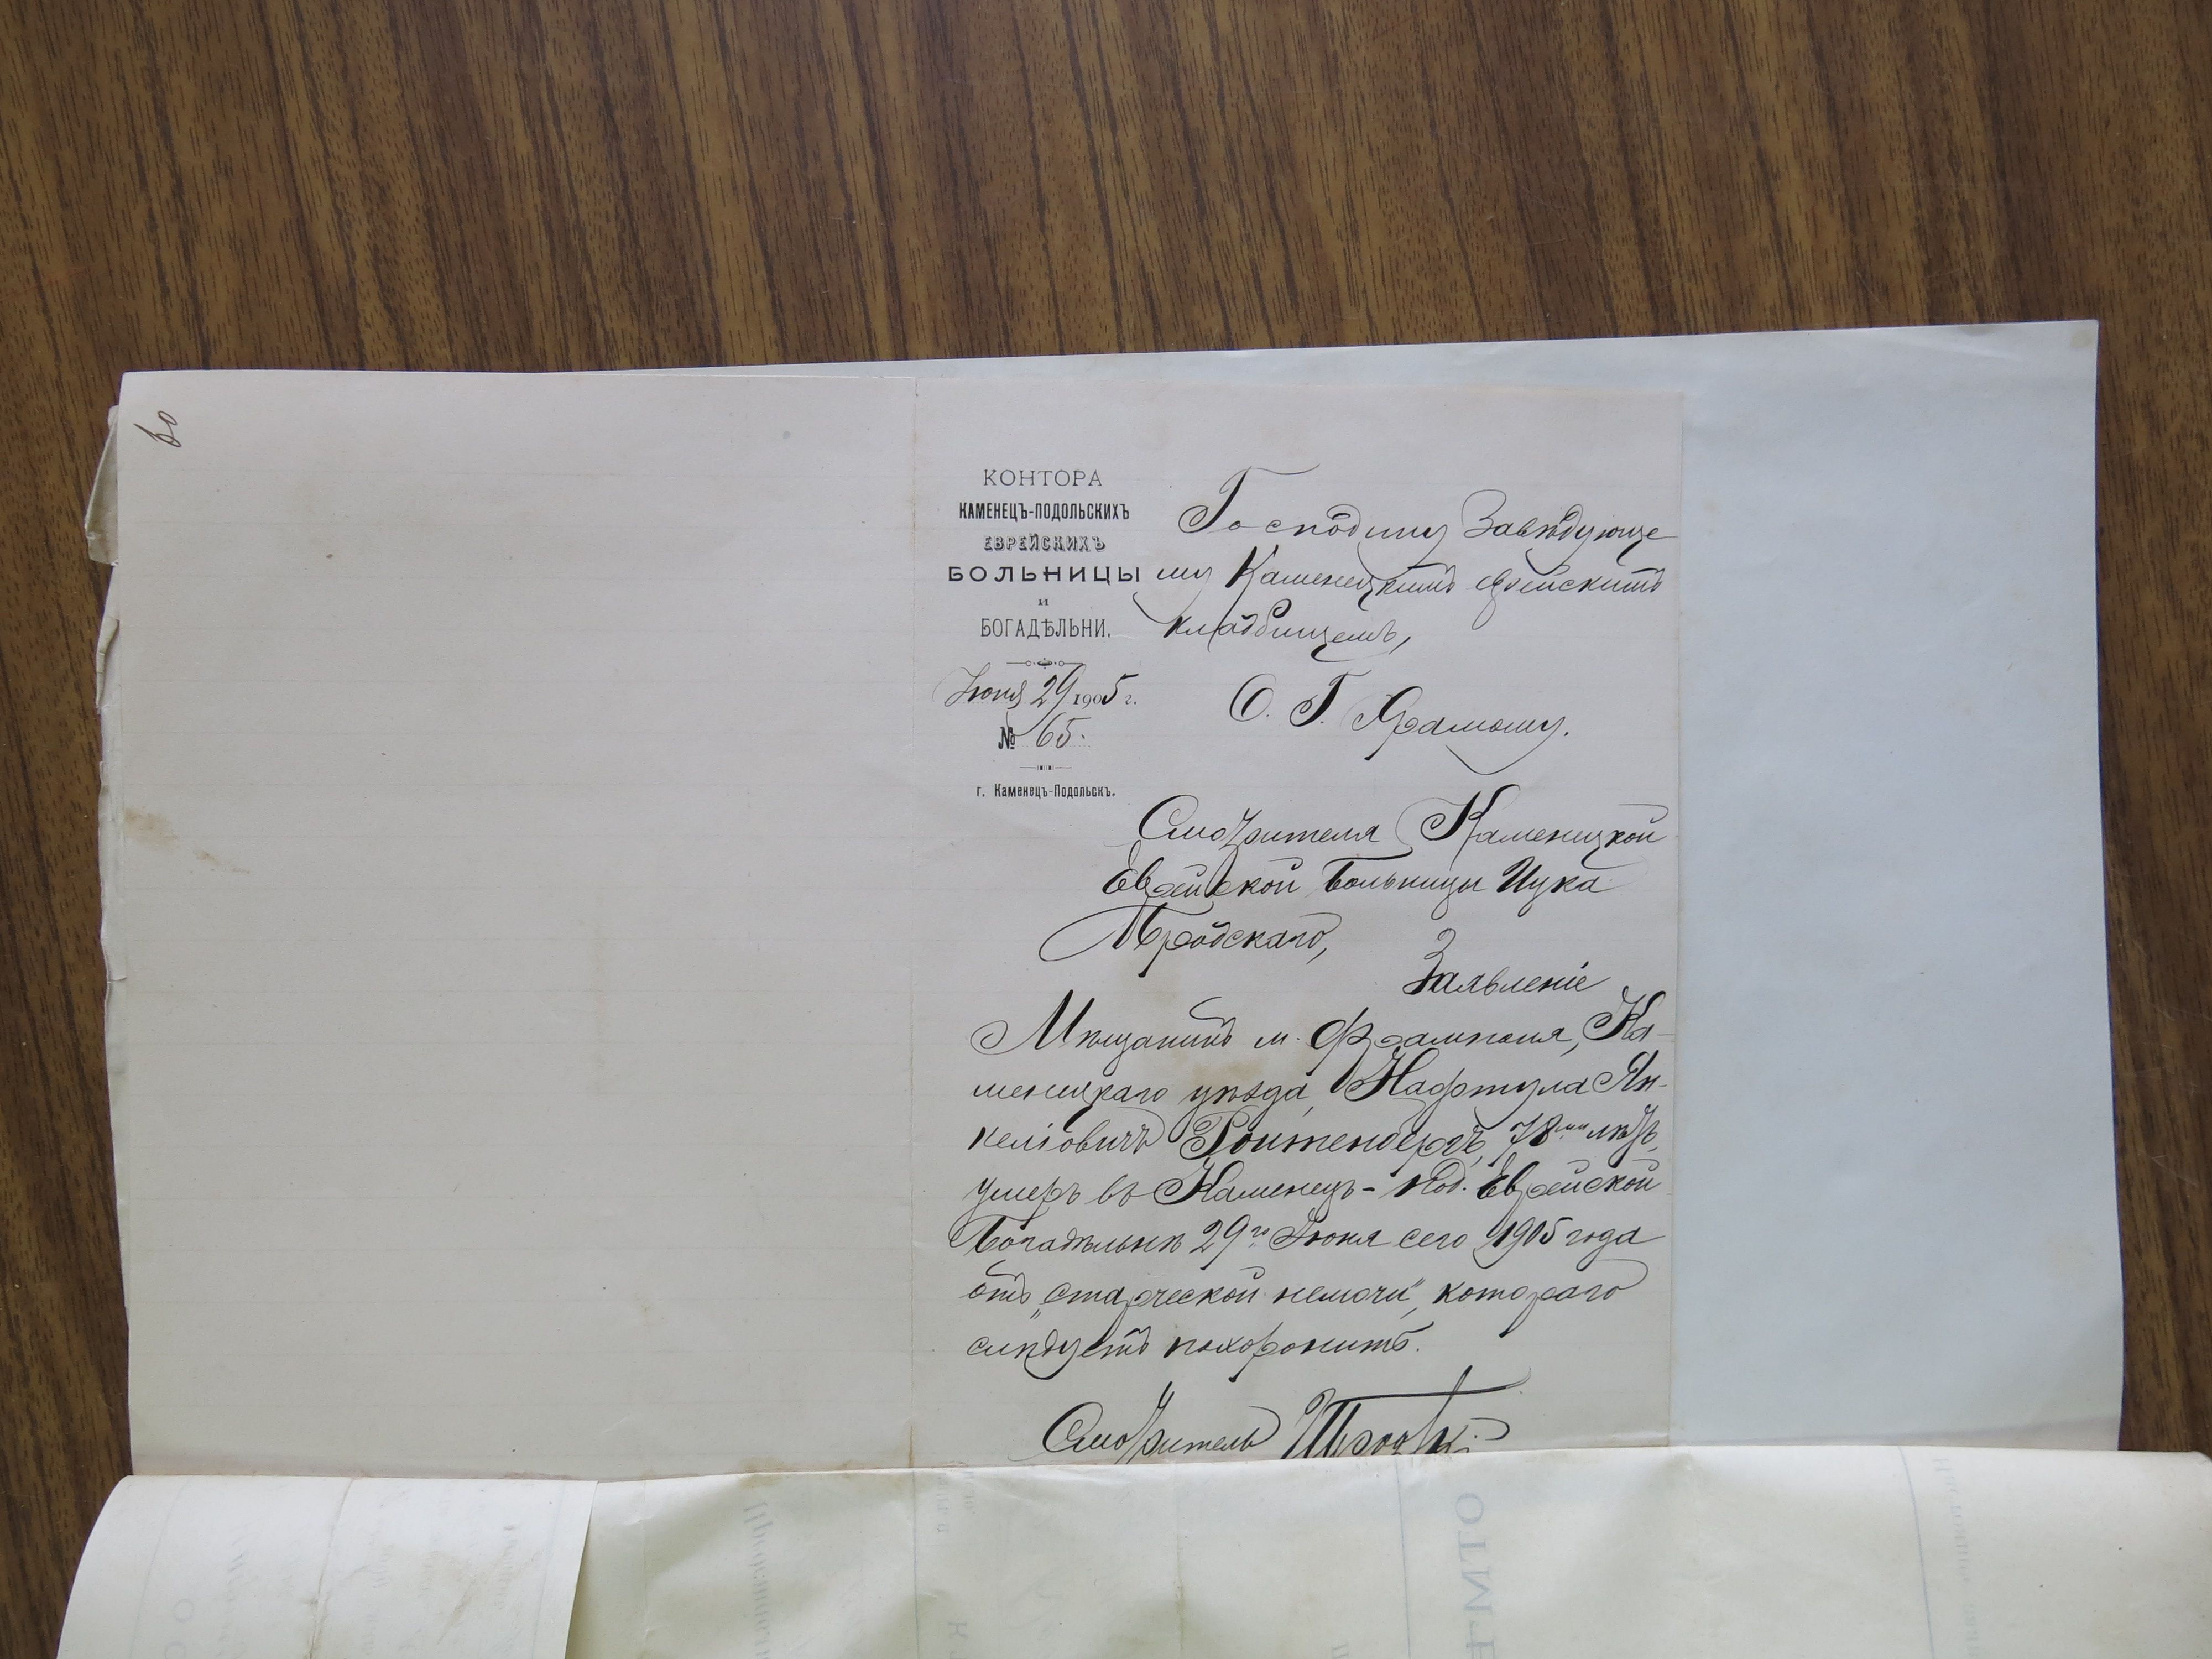 60
КОНТОРА
КАМЕНЕЦЪ-ПОДОЛЬСКИХЪ
ЕВРЕЙСКИХЪ
БОЛЬНИЦЫ
и
БОГАДѢЛЬНИ.
Іюня 29 1905 г.
№ 65.
г. Каменецъ-Подольскъ.
Господину Завѣдующе
му Каменецкимъ еврейскимъ
кладбищемъ,
О. Г.
Смотрителя Каменецкой
Еврейской Больницы Ицка
Бродскаго,
Заявленіе
Мѣщанинъ м. Фрамполя, Ка-
менецкаго уѣзда, Нафтула Ян-
келіовичъ Ройтенбергъ, 78ми лѣтъ,
умеръ въ Каменецъ-Под. Еврейской
Богадѣльнѣ 29го Іюня сего 1905 года
отъ „старческой немочи", котораго
слѣдуетъ похоронить.
Смотритель